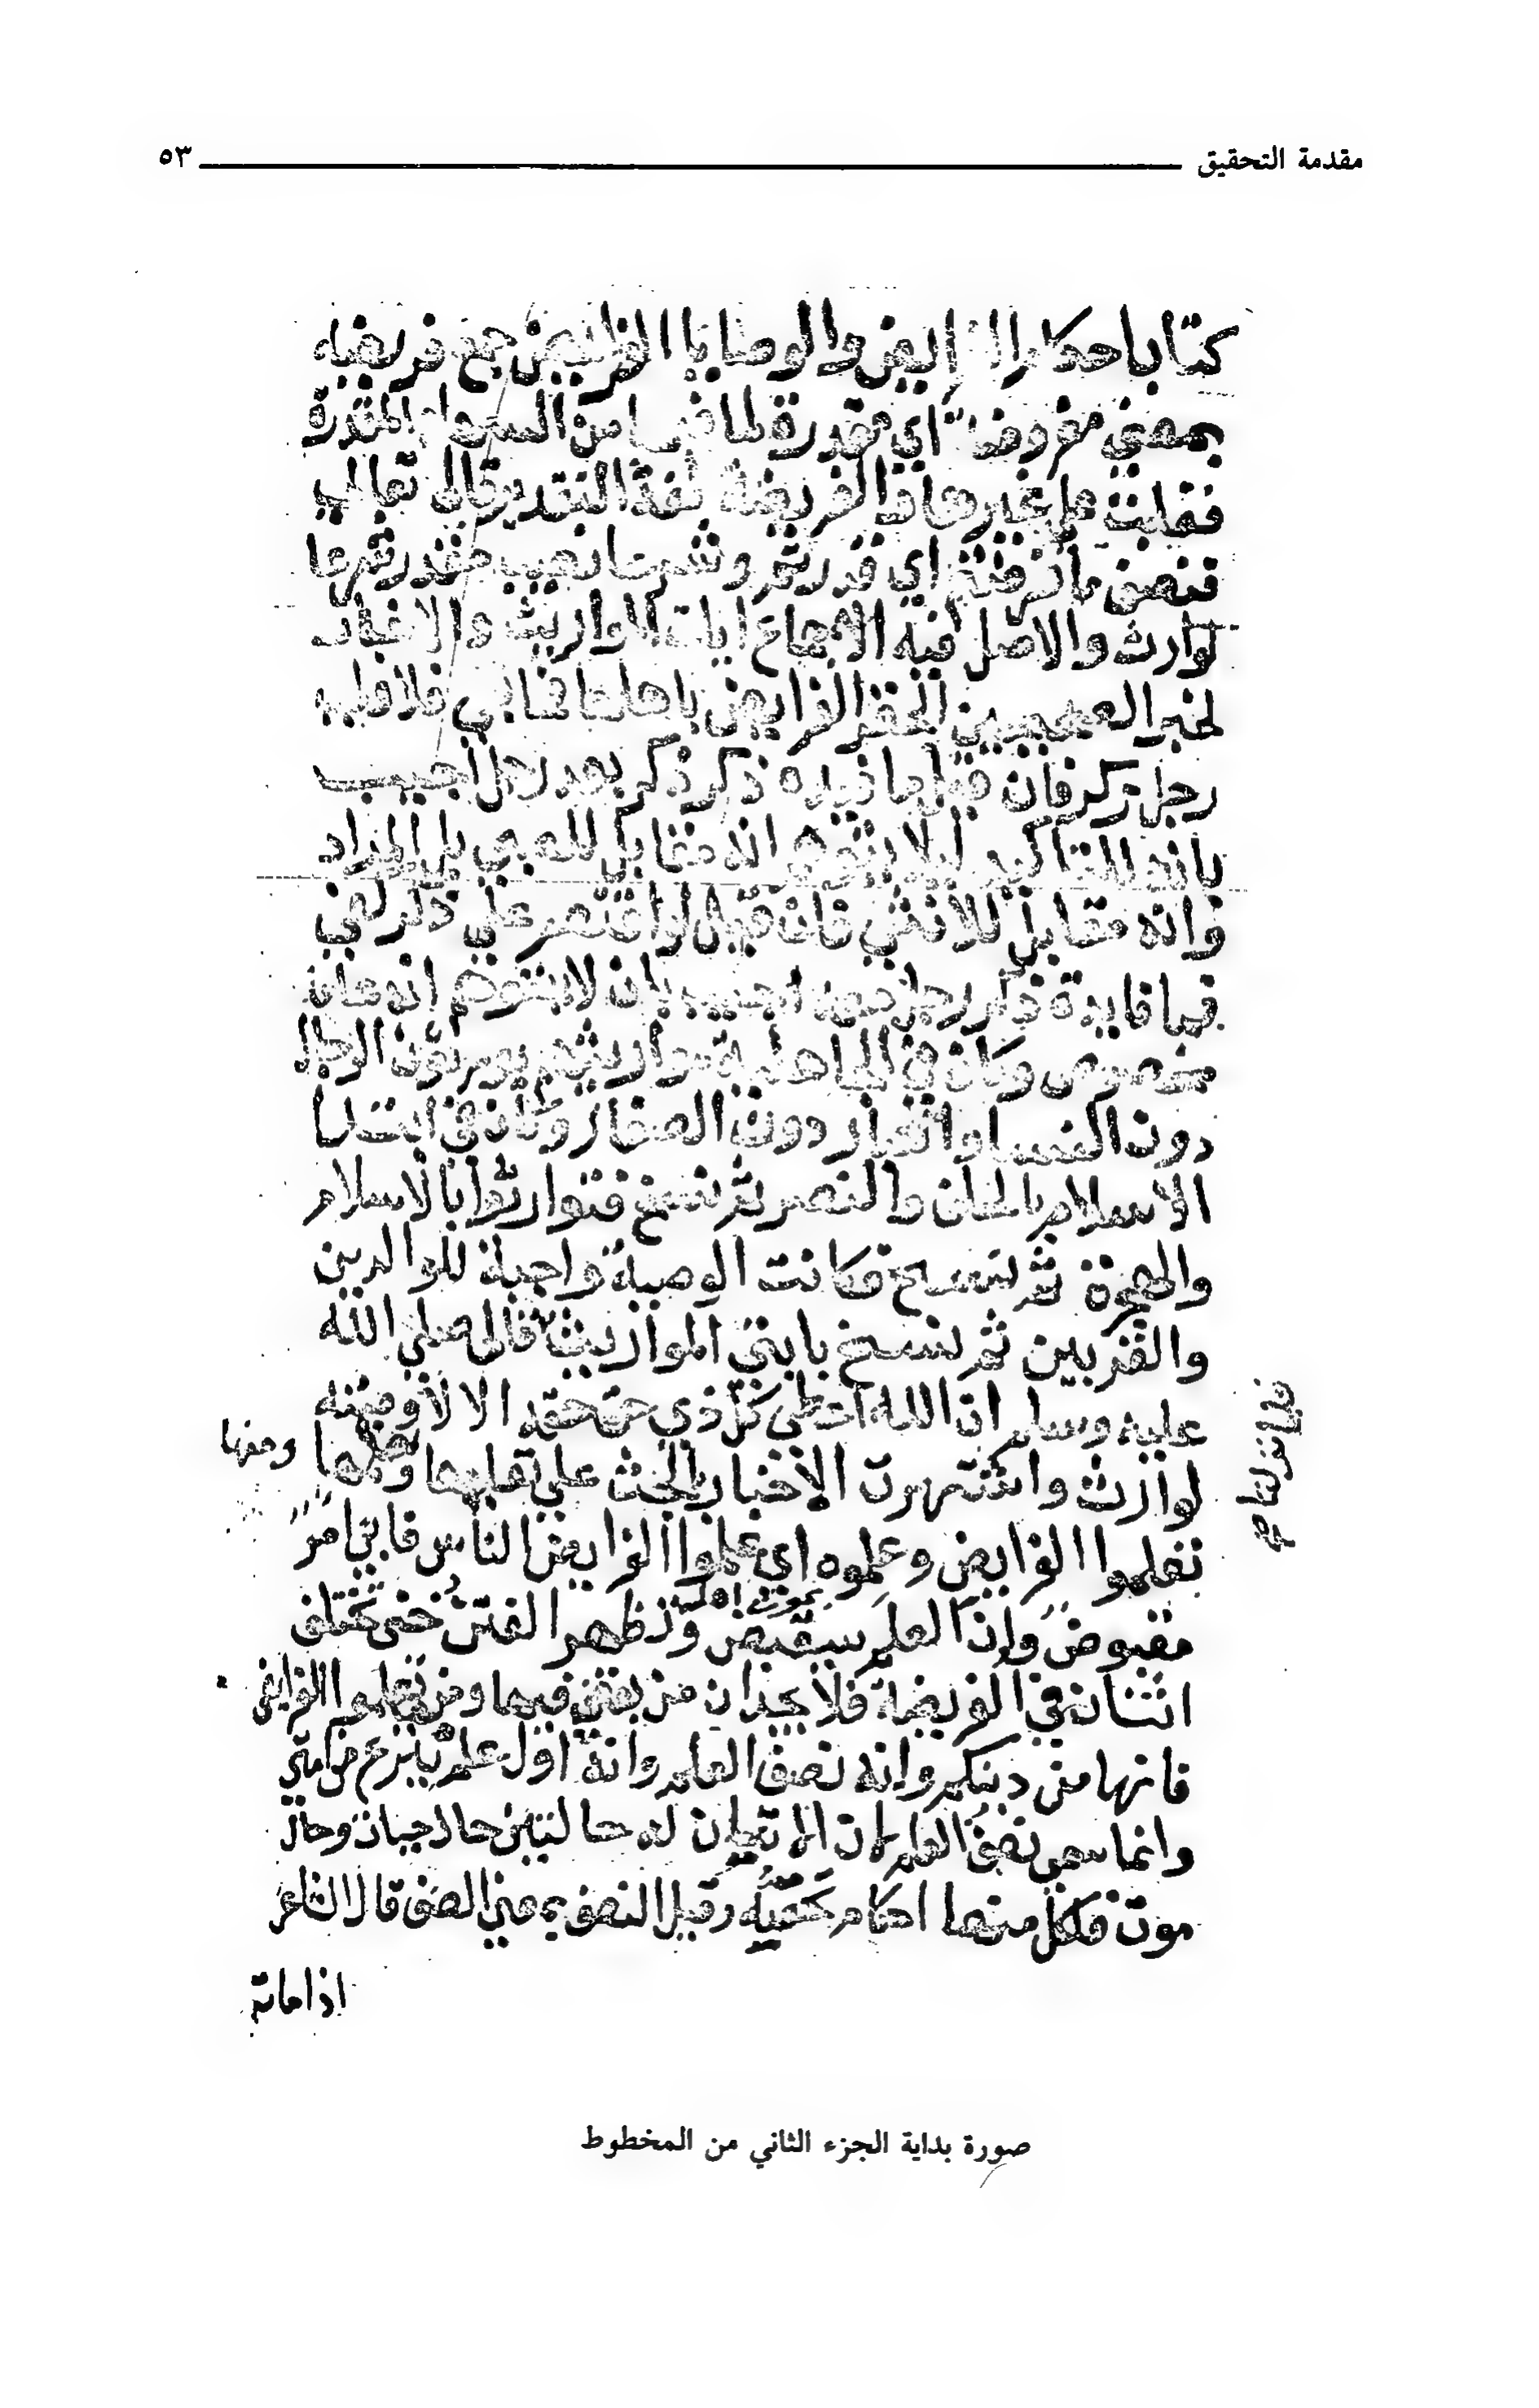 مقدمة التحقيق ٥٣
كتاب احكام الفرايض والوصايا الفرايض جمع فريضه
بمعنى مفروضة اي مقدرة لما فيها من السهام المقدرة
فغلبت على غيرها والفريضة لغة التقدير قال تعالى
فنصف ما فرضتم اي قدرتم وشرعا نصيب مقدر شرعا
لوارث والاصل فيه الاجماع ايات المواريث والاخبار
لخبر الصحيحين الحقوا الفرايض باهلها فما بقي فلاولى
رجل ذكر فان قيل ما فايده ذكر ذكر بعد رجل اجيب
بانه للتاكيد ليلا يتوهم انه مقابل للصبي بل المراد
وانه مقابل للانثى فان قيل لو اقتصر على ذكر كفى
فما فايدة ذكر رجل معه اجيب بان لا يتوهم انه عام
مخصوص وكان في الجاهلية مواريثهم يورثون الرجال
دون النسا والكبار دون الصغار وكان في ابتدا
الاسلام بالحلف والنصر ثم نسخ فتوارثوا بالاسلام
والهجرة ثم نسخ فكانت الوصية واجبة للوالدين
والقربين ثم نسخ بايتي المواريث قال صلى الله
عليه وسلم ان الله اعطى كل ذي حق حقه الا لا وصية
لوارث واشتهرت الاخبار بالحث على تعليمها وتعلمها ومنها
تعلموا الفرايض وعلموه اي علموا الفرايض الناس فاني امرؤ
مقبوض وان العلم سيقبض وتظهر الفتن حتى تختلف
بموت اهله
اثنان في الفريضة فلا يجدان من يفتي فيها ومن تعلموا الفرايض
فانها من دينكم وانه نصف العلم وانه اول علم ينزع من امتي
وانما سمي نصف العلم لان الانسان له حالتين حال حياة وحال
موت فلكل منهما احكام تخصه وقيل النصف بمعنى الصنف قال الشاعر
اذا مات
صورة بداية الجزء الثاني من المخطوط